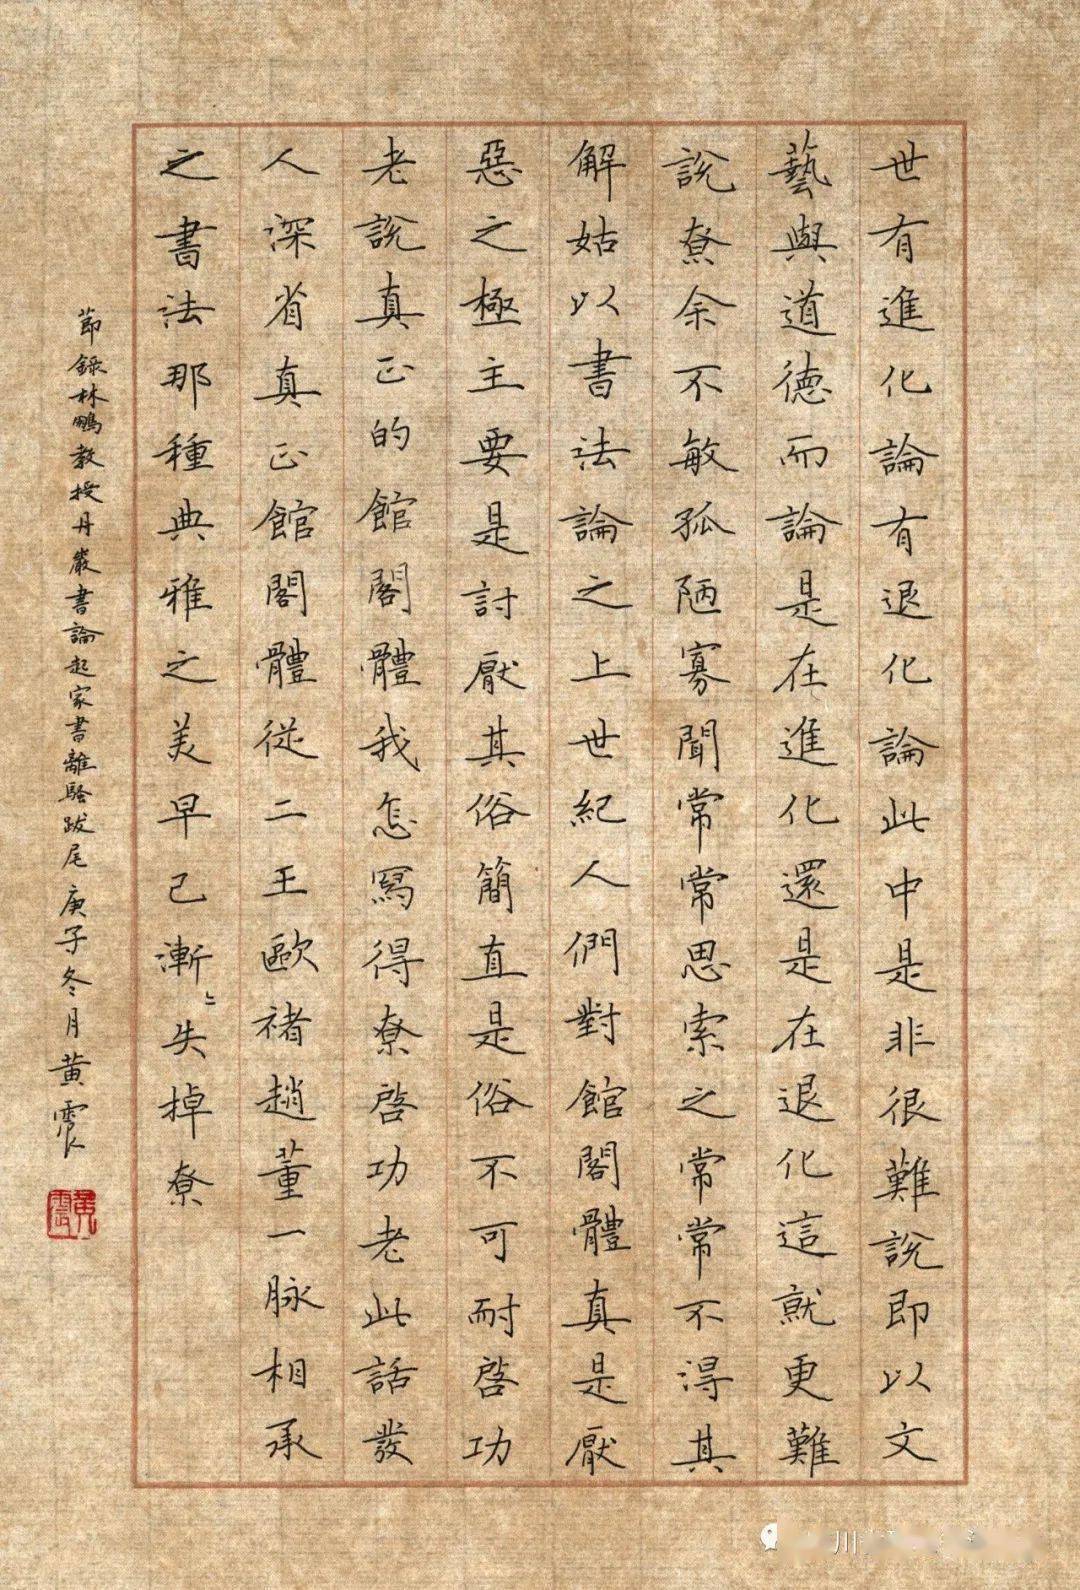 世有進化論有退化論此中是非很難説即以文
藝與道德而論是在進化還是在退化這就更難
説尞余不敏孤陋寡聞常常思索之常常不得其
解姑以書法論之上世紀人們對館閣體真是厭
惡之極主要是討厭其俗簡直是俗不可耐啓功
老説真正的館閣體我怎寫得尞啓功老此話發
人深省真正館閣體從二王歐褚趙董一脉相承
之書法那種典雅之美早已漸〻失掉尞
節錄林鵬教授丹巖書論起家書離騷跋尾庚子冬月黄震
黄震
川